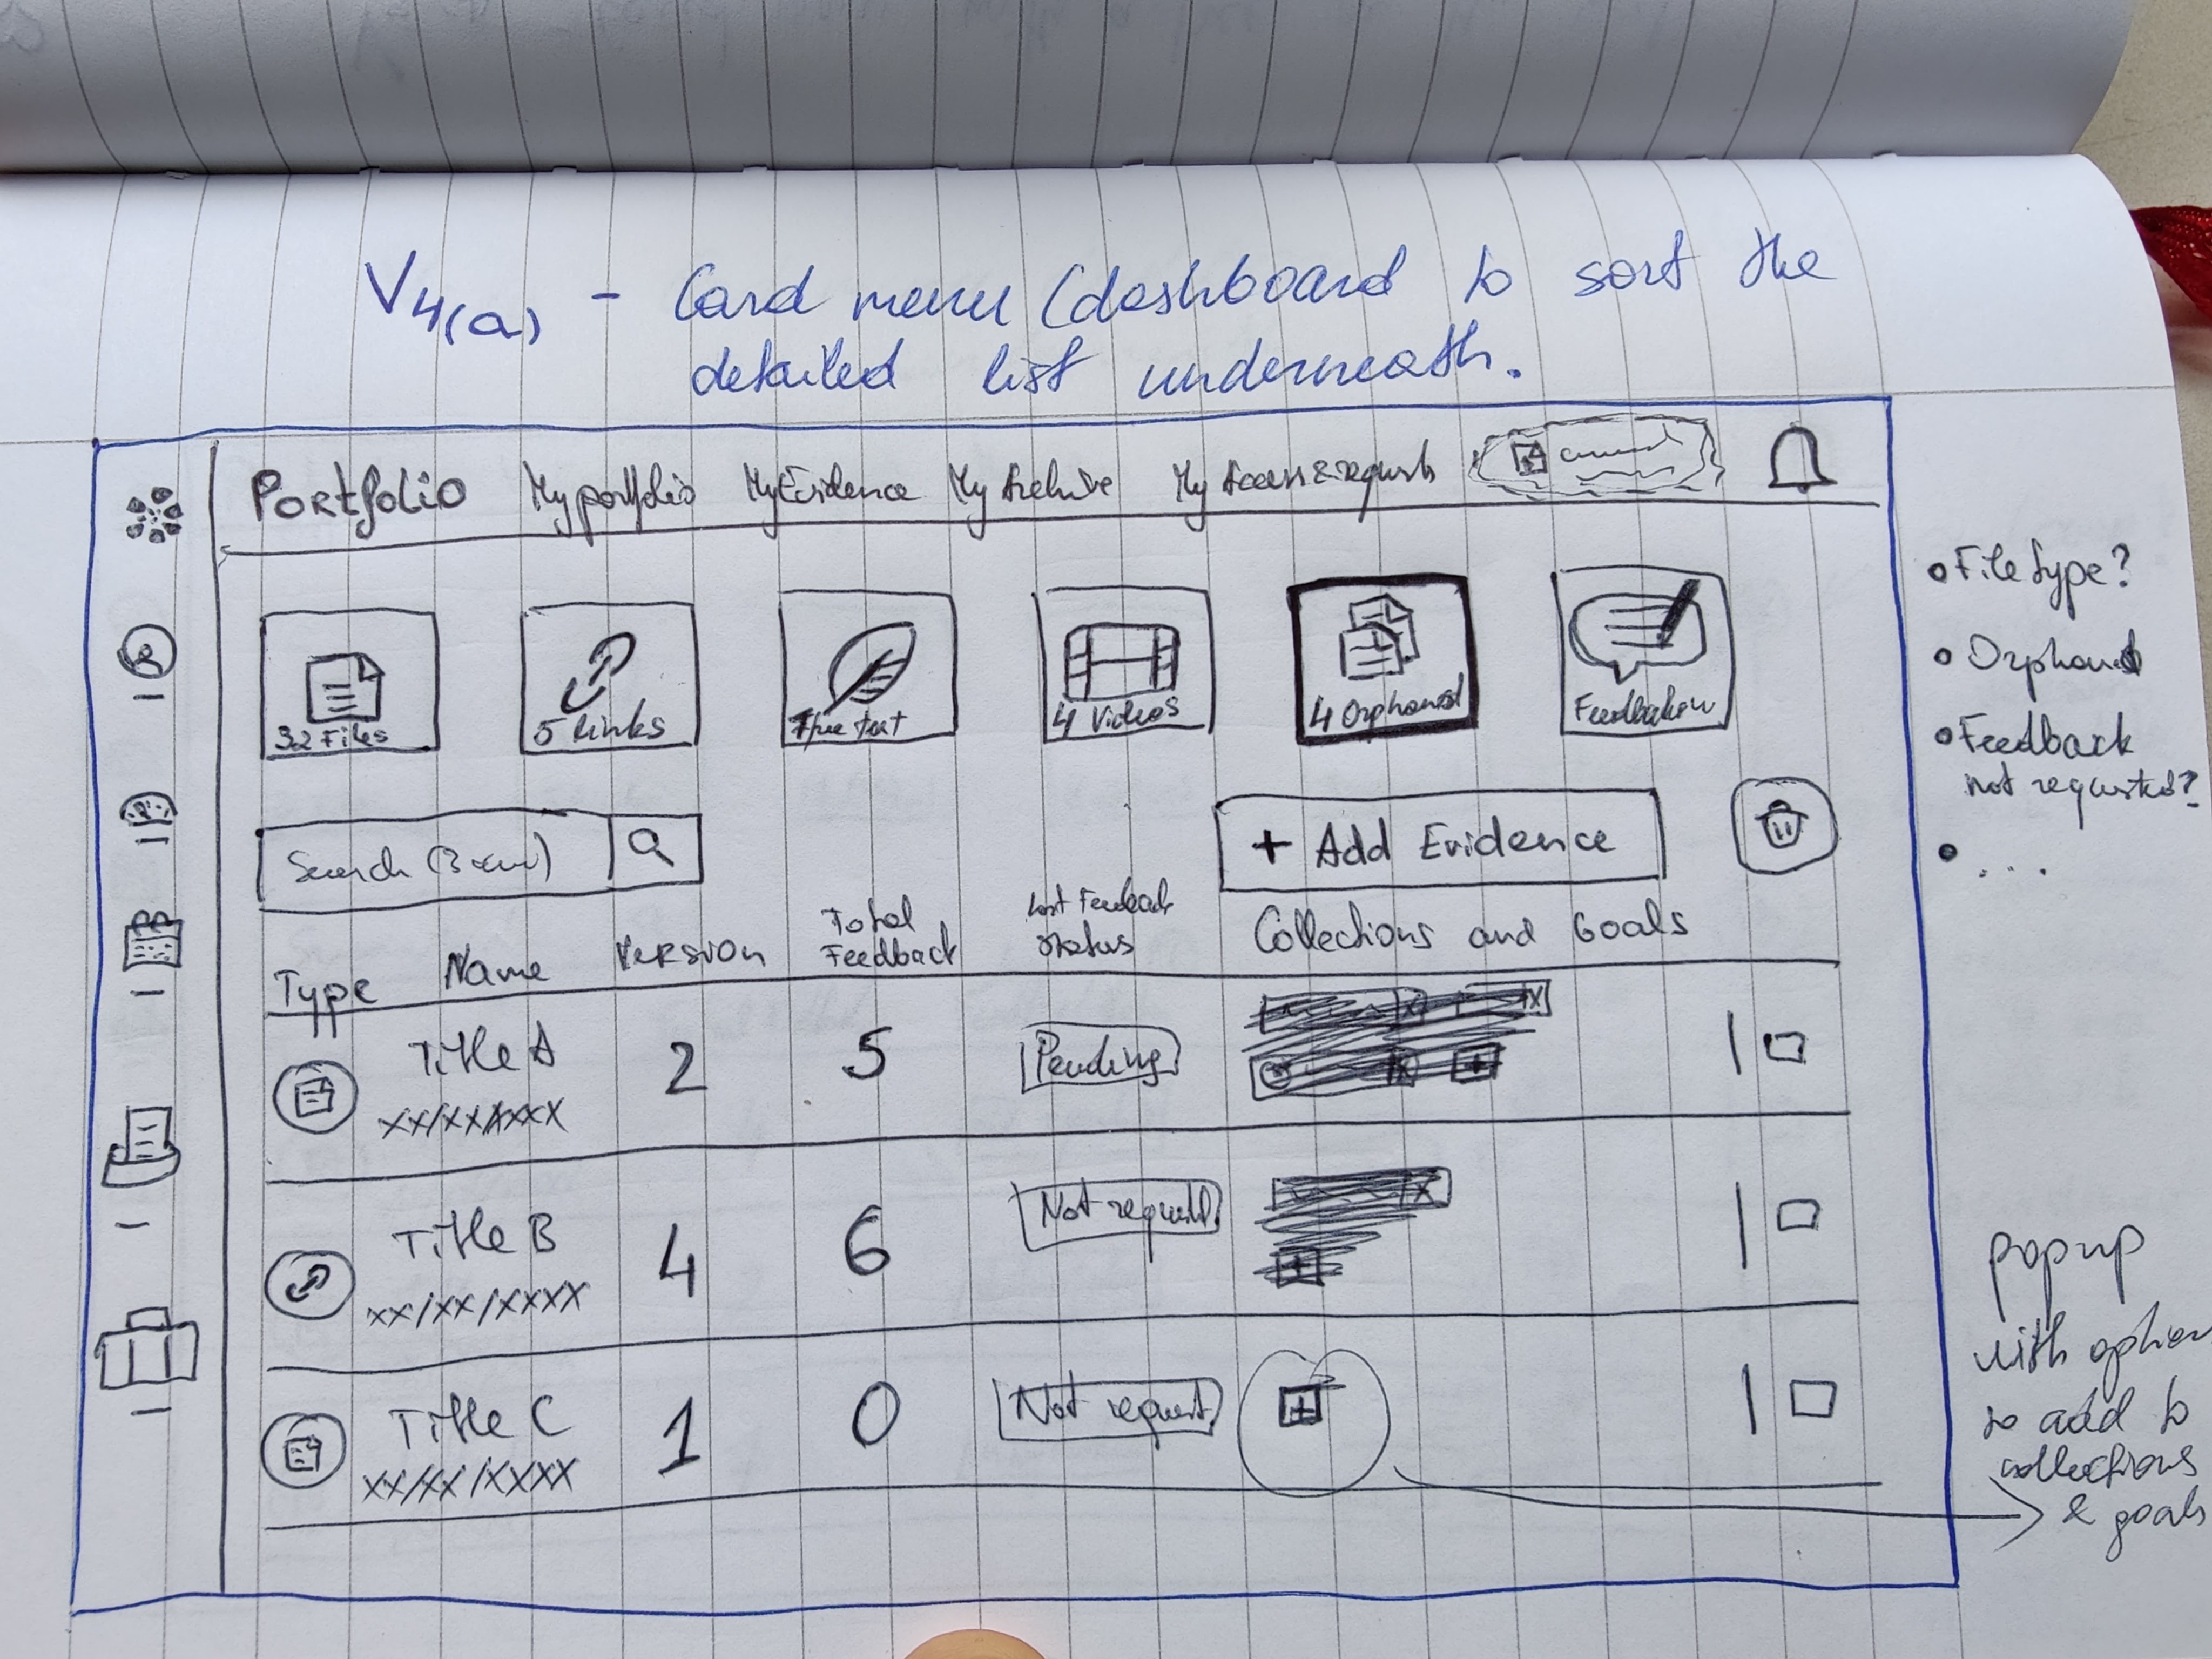 V4(a) - Card menu (dashboard to sort the
detailed list underneath.
Portfolio My portfolio My Evidence My Archive My Access & requests
32 Files
5 Links
Free text
4 Videos
4 Orphaned
Search (3 )
+ Add Evidence
Type Name Version Total Feedback Last Feedback Status Collections and Goals
Title A 2 5 Pending
xx/xx/xxxx
Title B 4 6 Not request
xx/xx/xxxx
Title C 1 0 Not request
xx/xx/xxxx
File type?
Orphaned
Feedback
not requested?
...
popup
with option
to add to
collections
& goals